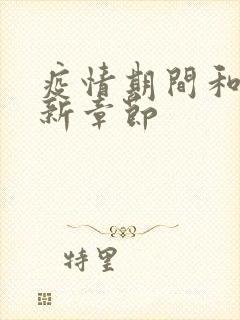 疫情期間和
新章節
特里